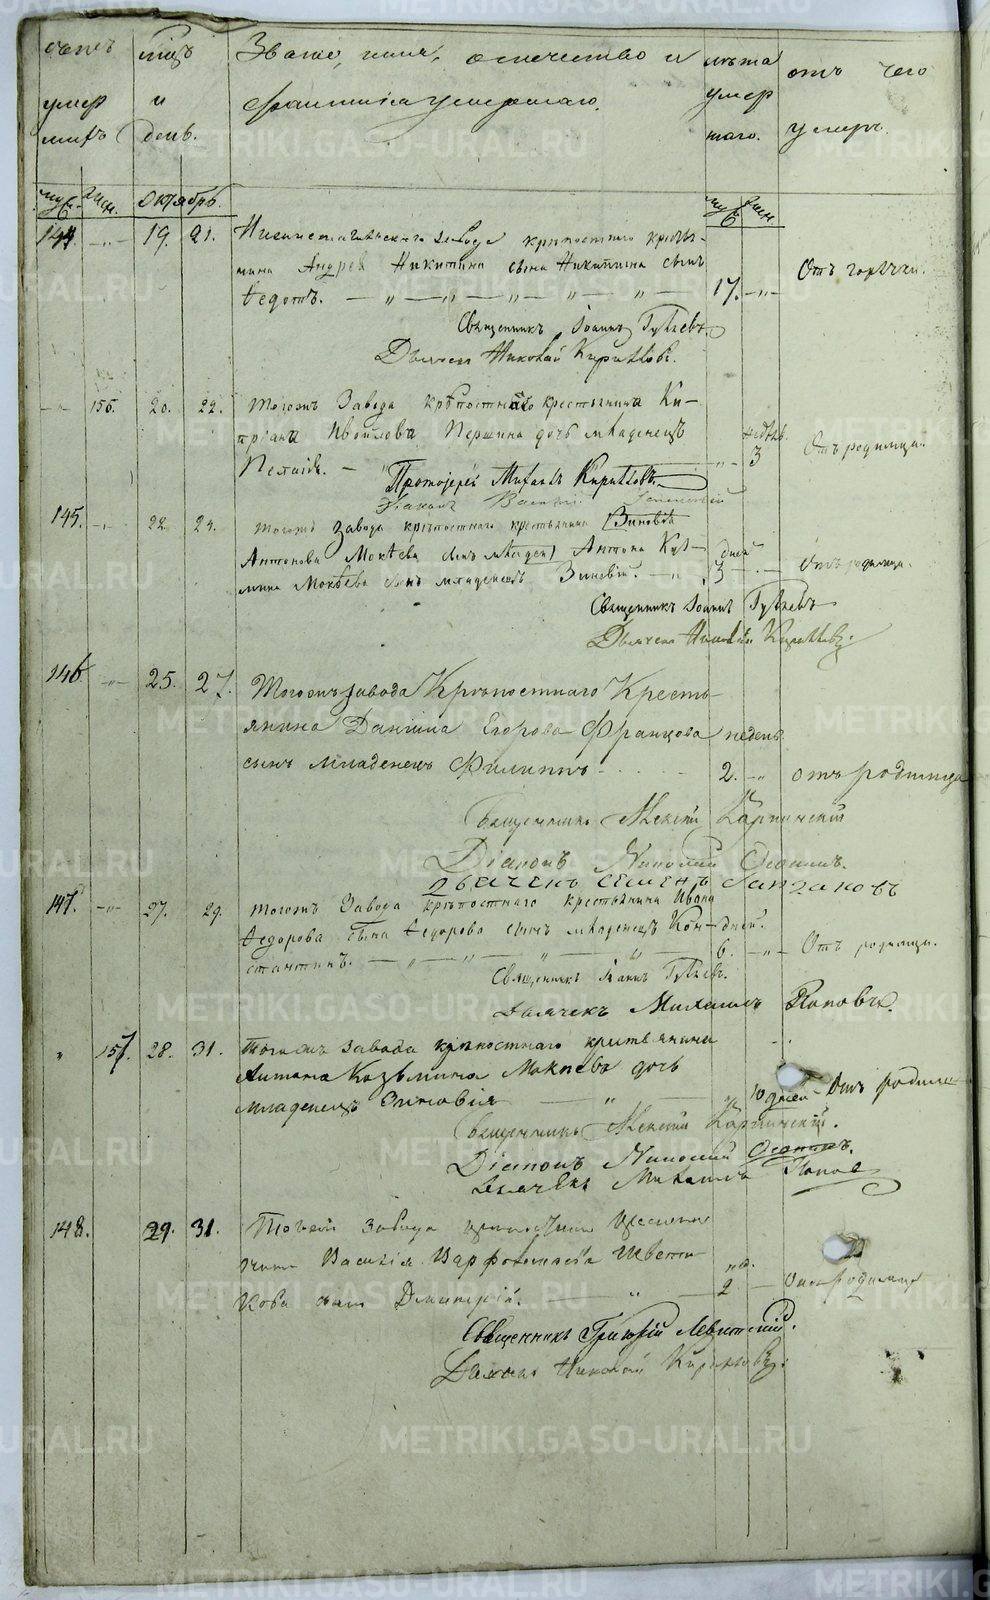 счетъ мѣсяцъ Званіе, имя, отечество и лѣта отъ чего
умер и фамилія умершаго. умер умеръ.
шихъ день. шаго.
муж. жен. Октябрь. муж. жен.
144 — " — 19. 21. Нижнетагильскаго завода крѣпостнаго кресть-
янина Андрея Никитина сына Никитина сынъ
Ѳедотъ. — " — " — " — " — " — 17. — " — Отъ горячки.
Священникъ Іоаннъ
Дьячекъ Николай Кирилловъ.
— " — 156. 20. 22. Тогожъ Завода крѣпостнаго крестьянина Ки-
пріана Першина дочь младенецъ недѣль.
Пелагія. — " — " — 3 Отъ родимца.
Протоіерей Михаилъ Кирилловъ.
Діаконъ
145. — " — 22. 24. Тогожъ завода крѣпостнаго крестьянина Зиновія
Антонова Мокѣева сынъ младен Антона Куз- дней
мина Мокѣева сынъ младенецъ Зиновій. — " — 3 — " — Отъ родимца.
Священникъ Іоаннъ
Дьячекъ Николай Кирилловъ.
146. — " — 25. 27. Тогожъ завода Крѣпостнаго Кресть-
янина Данила Егорова Францова недель
сынъ младенецъ Филиппъ 2. — " отъ родимца
Священникъ Алексій Карпинскій
Діаконъ Николай Осининъ.
Дьячекъ Семенъ
147. — " — 27. 29. Тогожъ Завода крѣпостнаго крестьянина Ивана
Ѳедорова сына Ѳедорова сынъ младенецъ Кон- дней.
стантинъ. — " — " — " — " — 6. — " — Отъ родимца.
Священникъ Іоаннъ
Дьячекъ Михаилъ Поповъ.
" 157. 28. 31. Тогожъ завода крѣпостнаго крестьянина
Антона Козьмина Мокѣева дочь
младенецъ Зиновія — " — " 10 дней — Отъ родим
Священникъ Алексій Карпинскій.
Діаконъ Николай Осининъ.
Дьячекъ Михаилъ Попов
148. 29. 31. Тогожъ завода крѣпостнаго крестья-
нина Василія Варфоломеева Цвети- не.
кова сынъ Димитрій. — " — 2 — Отъ родимца
Священникъ Григорій Левитскій.
Дьячекъ Николай Кирилловъ.
METRIKI.GASO-URAL.RU